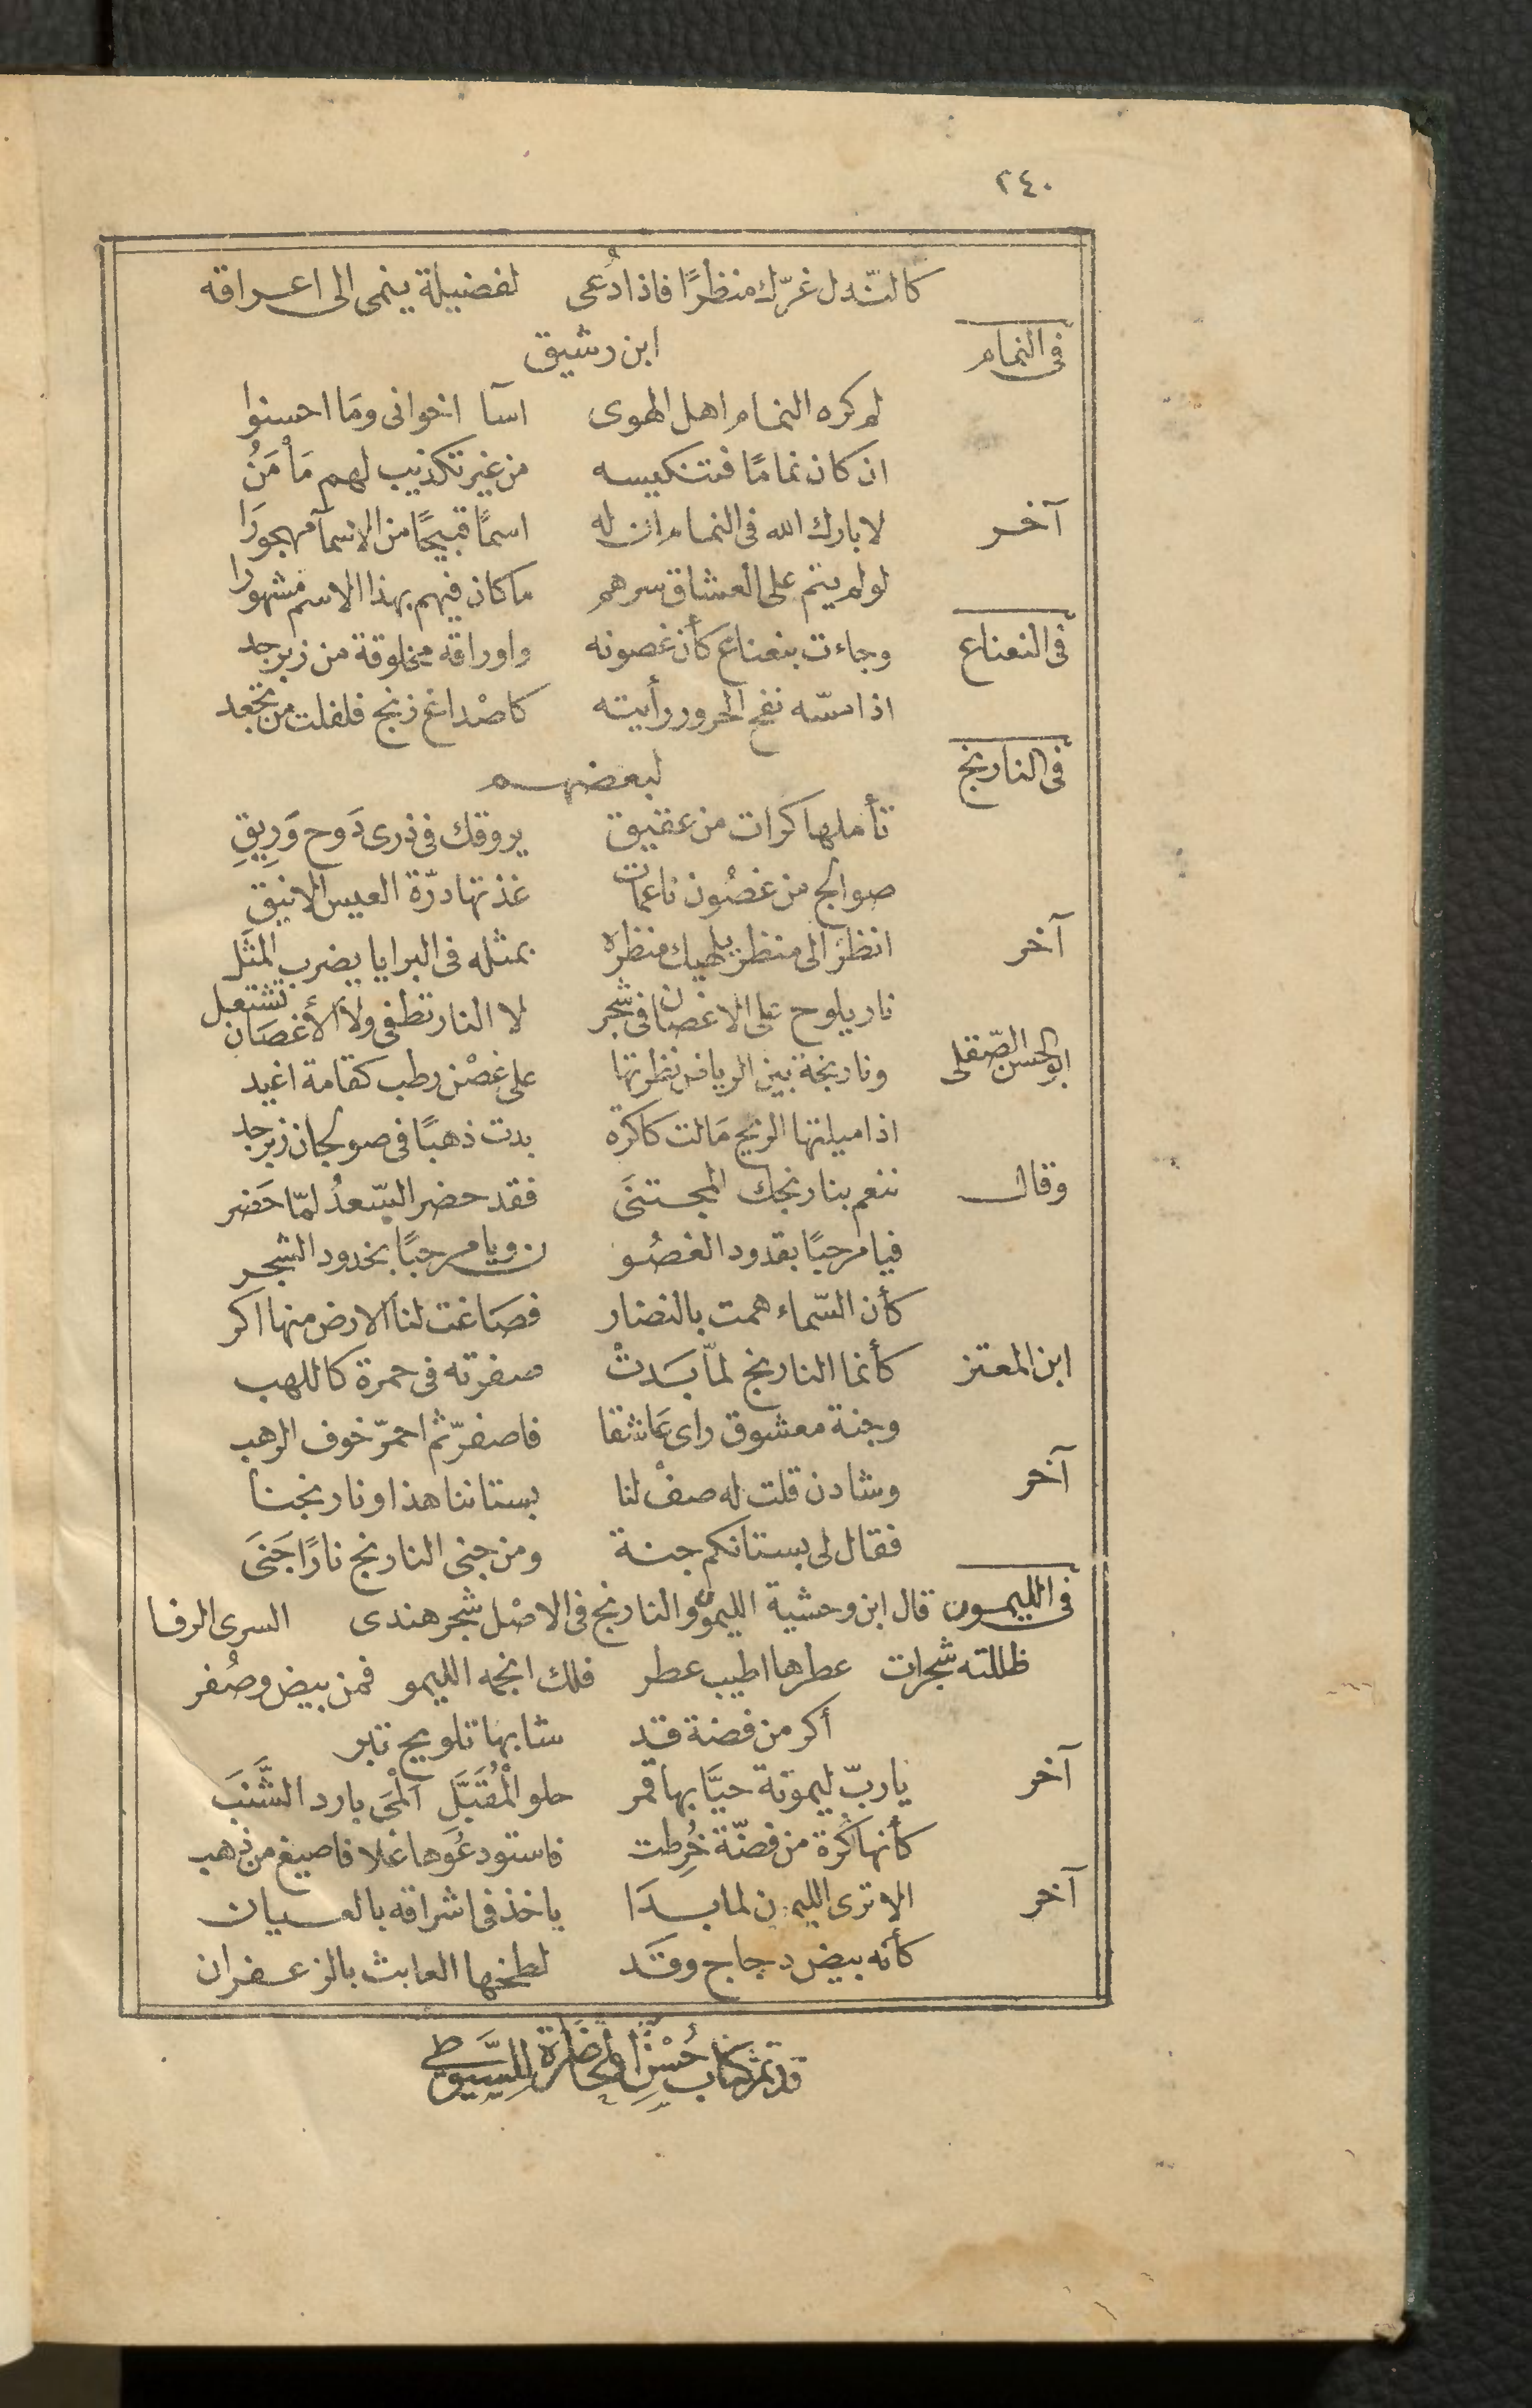 ٢٤٠
كالنّدل غرّك منظرًا فاذا دُعى لفضيلة ينمى الى اعراقه
فى النمام ابن رشيق
لم كره النمام اهل الهوى اسآ اخوانى ومَا احسنوا
ان كان نمامًا فتنكيسه من غير تكذيب لهم مَأمَنُ
آخر لا بارك الله فى النمام ان له اسمًا قبيحًا من الاسمآ مهجورَا
لو لم ينم على العشاق سرهم ما كان فيهم بهذا الاسم مشهورا
فى النعناع وجاءت بنعناع كأن غصونه واوراقه مخلوقة من زبرجد
اذا مسّه نفح الحرور رأيته كاصْداغ زنج فلفلت من تجعد
فى النارنج لبعضهم
تأملها كرات من عقيق يروقك فى ذرى دَوح وَرِيقِ
صوالج من غصُون ناعمات غذتها درّة العيس الانيق
آخر انظرَ الى منظر يلهيك منظرَه بمثله فى البرايا يضرب المثَل
نار يلوح على الاغصان فى شجر لا النار تطفى ولا الأغصَان تشتعل
ابو الحسن الصّقلى ونارنجة بين الرياض نظرتها على غصْن رطب كقامة اغيد
اذا ميلتها الريح مَالت كاكرة بدت ذهبًا فى صولجان زبرجد
وقال تنعم بنارنجك المجتنَى فقد حضر السّعدُ لمّا حَضر
فيا مرحبًا بقدود الغصُو ن ويا مرحبًا بخدود الشجر
كأن السّماء همت بالنضار فصَاغت لنا الارض منها اكر
ابن المعتز كأنما النارنج لمّا بَدتْ صفرته فى حمرة كاللهب
وجنة معشوق راى عَاشقا فاصفرّ ثم احمرّ خوف الرهب
آخر وشادن قلت له صفْ لنا بستاننا هذا ونارنجنا
فقال لى بستانكم جنة ومن جنى النارنج نارًا جَنَى
فى الليمون قال ابن وحشية الليمون والنارنج فى الاصْل شجر هندى السرى الرفا
ظللته شجرات عطرها اطيب عطر فلك انجمه الليمو فمن بيض وصُفر
أكر من فضة قد شابها تلويح تبر
آخر ياربّ ليمونة حيَّا بها قمر حلو الْمُقَبَّل ألْمَى بارد الشَّنَبَ
كأنها كُرة من فضّة خُرِطت فاستودعُوها غلافا صيغ من ذهب
آخر الا ترى الليمون لما بدَا ياخذ فى اشراقه بالعيان
كأنه بيض دجاج وقَد لطخها العابث بالزعفران
قد تم كتاب حُسْن المحَاضَرة للسيوطى